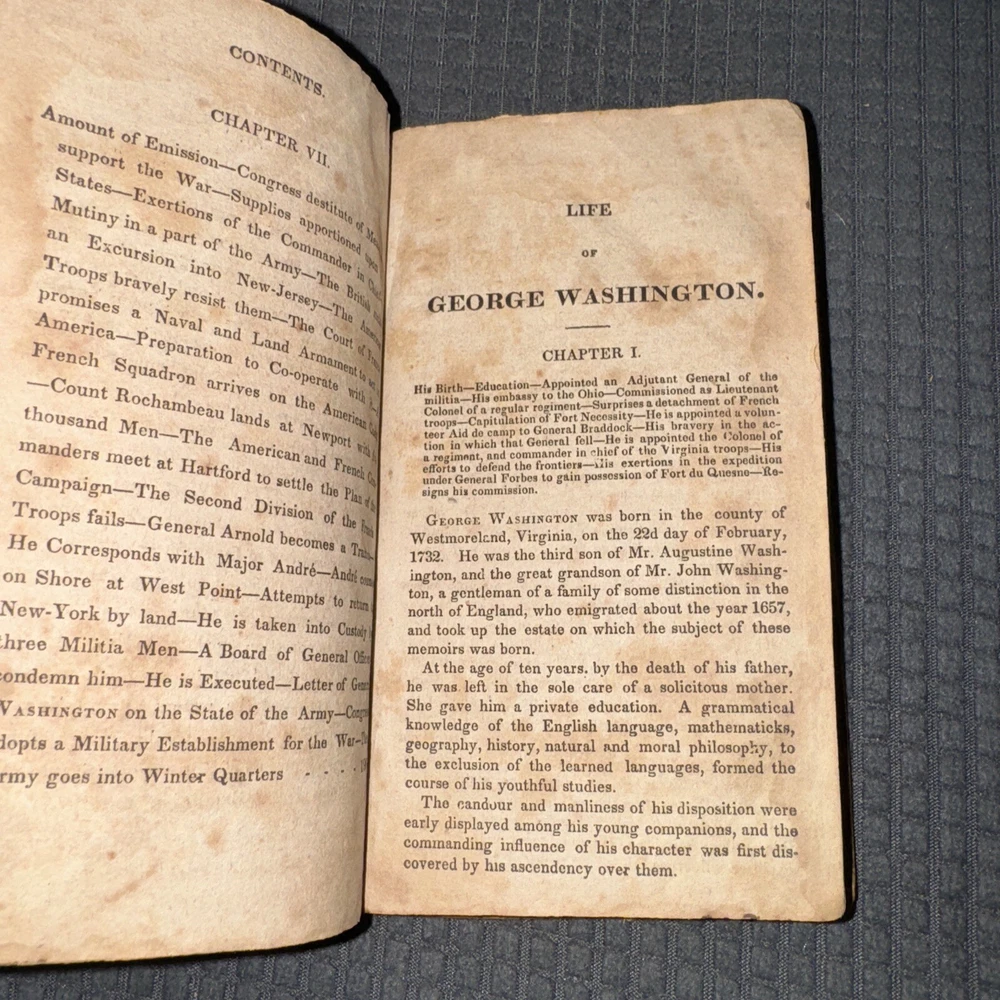 CONTENTS.
CHAPTER VII.
Amount of Emission—Congress destitute of
support the War—Supplies apportioned upon
States—Exertions of the Commander in Chief
Mutiny in a part of the Army—The British
an Excursion into New-Jersey—The American
Troops bravely resist them—The Court of
promises a Naval and Land Armament to
America—Preparation to Co-operate with
French Squadron arrives on the American
—Count Rochambeau lands at Newport with
thousand Men—The American and French
manders meet at Hartford to settle the Plan of the
Campaign—The Second Division of the French
Troops fails—General Arnold becomes a
He Corresponds with Major André—André
on Shore at West Point—Attempts to return
New-York by land—He is taken into Custody
three Militia Men—A Board of General
condemn him—He is Executed—Letter of
WASHINGTON on the State of the Army—
dopts a Military Establishment for the War—
rmy goes into Winter Quarters - - - -
LIFE
OF
GEORGE WASHINGTON.
CHAPTER I.
His Birth—Education—Appointed an Adjutant General of the
militia—His embassy to the Ohio—Commissioned as Lieutenant
Colonel of a regular regiment—Surprises a detachment of French
troops—Capitulation of Fort Necessity—He is appointed a volun-
teer Aid de camp to General Braddock—His bravery in the ac-
tion in which that General fell—He is appointed the Colonel of
a regiment, and commander in chief of the Virginia troops—His
efforts to defend the frontiers—His exertions in the expedition
under General Forbes to gain possession of Fort du Quesne—Re-
signs his commission.
GEORGE WASHINGTON was born in the county of
Westmoreland, Virginia, on the 22d day of February,
1732. He was the third son of Mr. Augustine Wash-
ington, and the great grandson of Mr. John Washing-
ton, a gentleman of a family of some distinction in the
north of England, who emigrated about the year 1657,
and took up the estate on which the subject of these
memoirs was born.
At the age of ten years. by the death of his father,
he was left in the sole care of a solicitous mother.
She gave him a private education. A grammatical
knowledge of the English language, mathematicks,
geography, history, natural and moral philosophy, to
the exclusion of the learned languages, formed the
course of his youthful studies.
The candour and manliness of his disposition were
early displayed among his young companions, and the
commanding influence of his character was first dis-
covered by his ascendency over them.